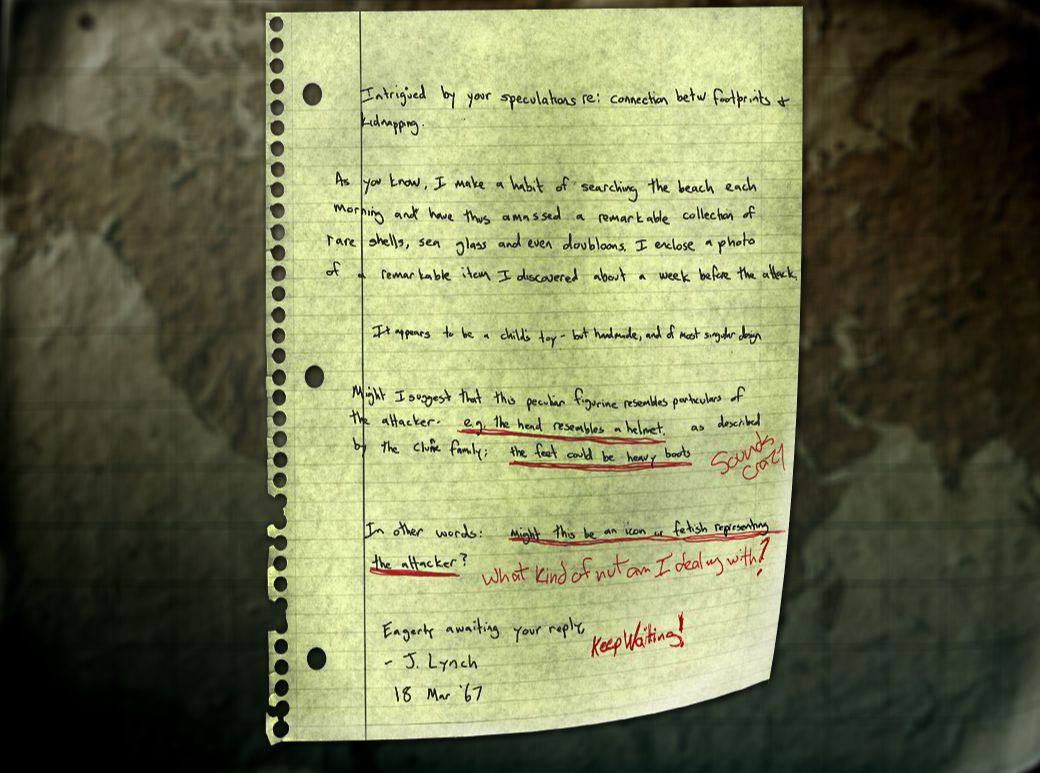 Intrigued by your speculations re: connection betw footprints +
kidnapping.
As you know, I make a habit of searching the beach each
morning and have thus amassed a remarkable collection of
rare shells, sea glass and even doubloons. I enclose a photo
of a remarkable item I discovered about a week before the attack.
It appears to be a child's toy - but handmade, and of most singular design
Might I suggest that this peculiar figurine resembles particulars of
the attacker. e.g. the head resembles a helmet, as described
by the Clune family; the feet could be heavy boots
Sounds
crazy
In other words: Might this be an icon or fetish representing
the attacker?
What kind of nut am I dealing with?
Eagerly awaiting your reply,
Keep Waiting!
- J. Lynch
18 Mar '67